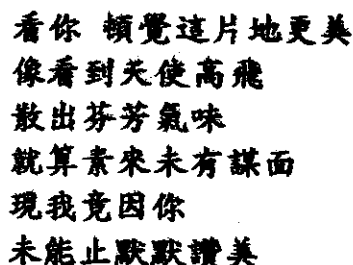 看你 頓覺這片地更美
像看到天使高飛
散出芬芳氣味
就算素來未有謀面
現我竟因你
未能止默默讚美